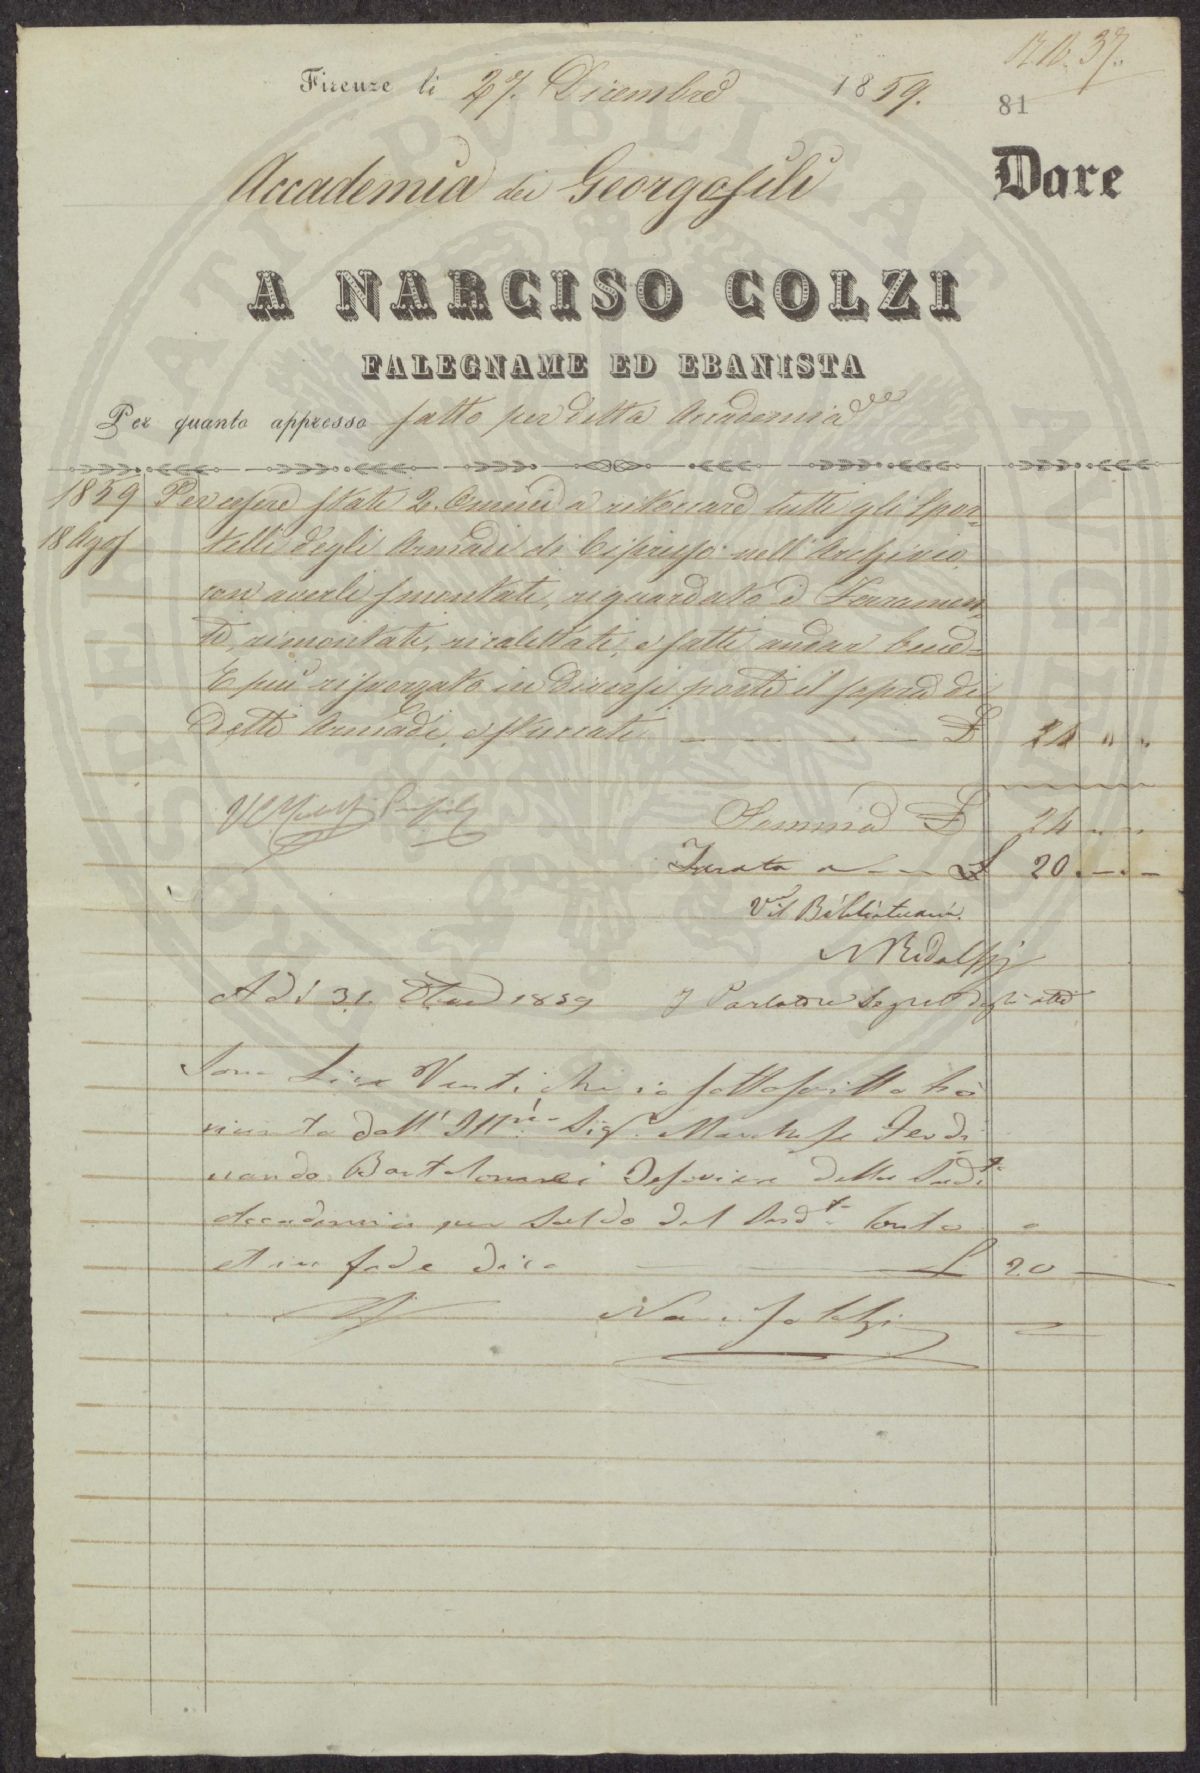 N. 37.
Firenze li 27. Dicembre 1859.
81
Accademia dei Georgofili
Dare
A NARCISO COLZI
FALEGNAME ED EBANISTA
Per quanto appresso fatto per detta Accademia
1859 Per essere stati 2. Omini a ritoccare tutti gli Spor-
18 Agos telli degli Armadi di Cipresso nell'Archivio,
con averli smontati, riguardato i Ferramen-
ti, rimontati, e fatti andar bene=
E più rinforzato in diversi posti il sopra di
Detti Armadi, e stuccati £ 24 " "
Somma £ 24
Tarata a £ 20.
V° il Bibliotecario
Ridolfi
A dì 31 1859 Parlatore Segret. degli atti
Sono Lire Venti che io sottoscritto ho
ricevuto dall' Ill.mo Sig.r Marchese Ferdi
nando Bartolommei Tesoriere della Sudd.ta
Accademia per Saldo del Sud.to Conto
et in fede dico £ 20
Narciso Colzi